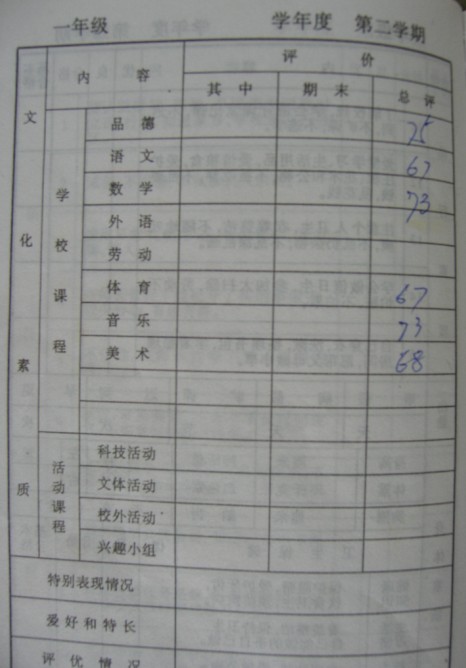 一年级 学年度 第二学期
评 价
内 容
其中 期末 总评
文化素质
学校课程
品德 75
语文 67
数学 73
外语
劳动
体育 67
音乐 73
美术 68
活动课程
科技活动
文体活动
校外活动
兴趣小组
特别表现情况
爱好和特长
评优情况